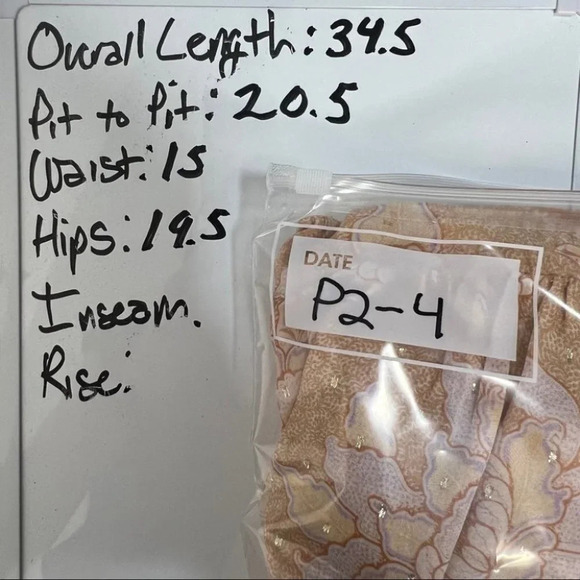 Overall Length: 34.5
Pit to Pit: 20.5
Waist: 15
Hips: 19.5
Inseam.
Rise:
DATE
P2-4